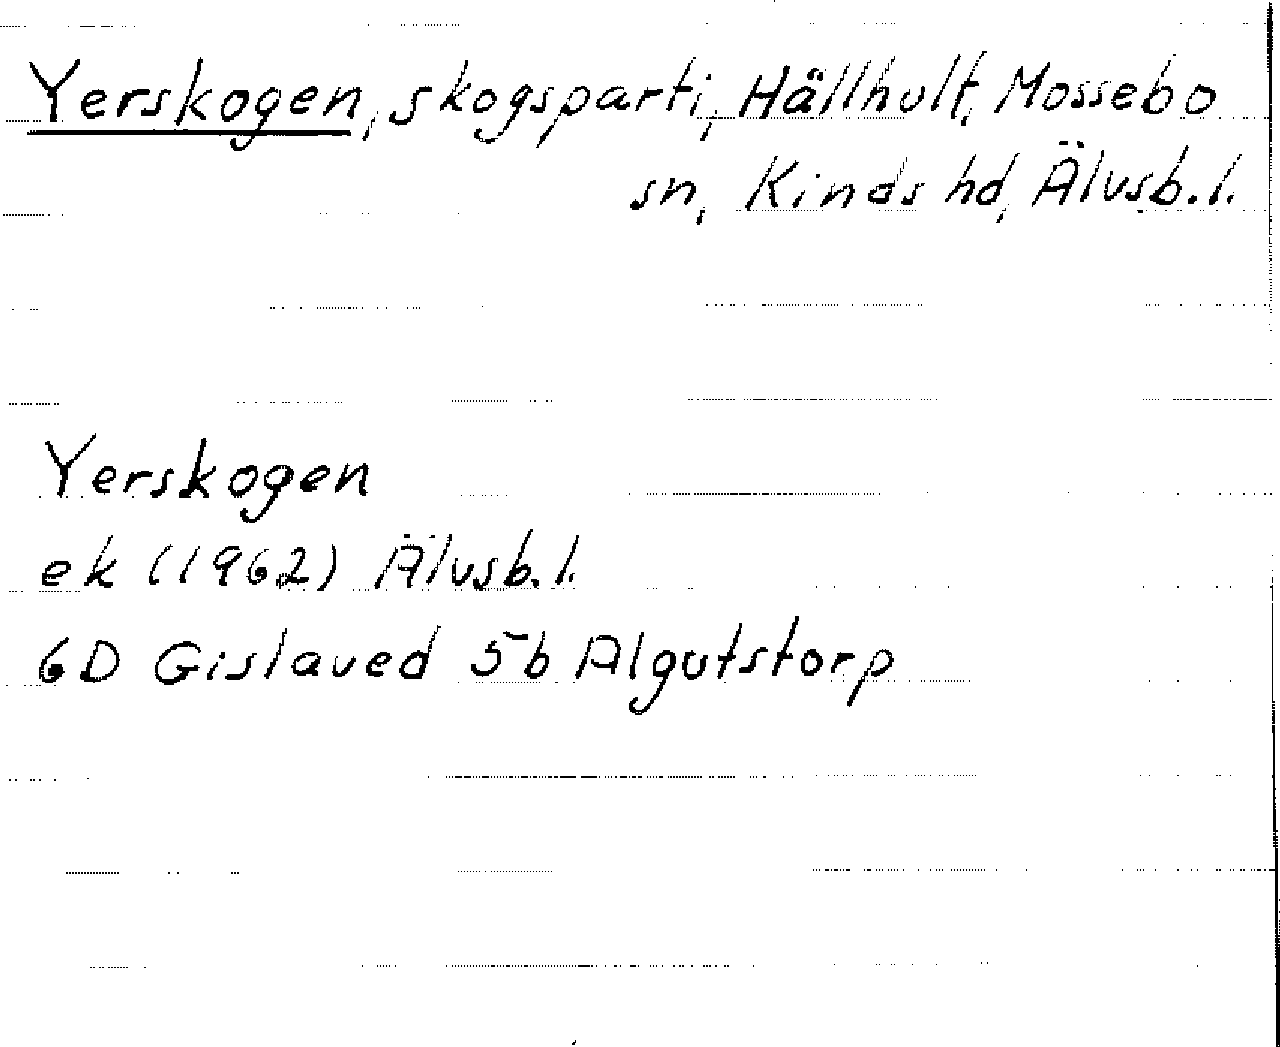 Yerskogen, skogsparti, Hällhult, Mossebo
sn, Kinds hd, Älvsb.l.
Yerskogen
ek (1962) Älvsb.l.
6D Gislaved 5b Algutstorp